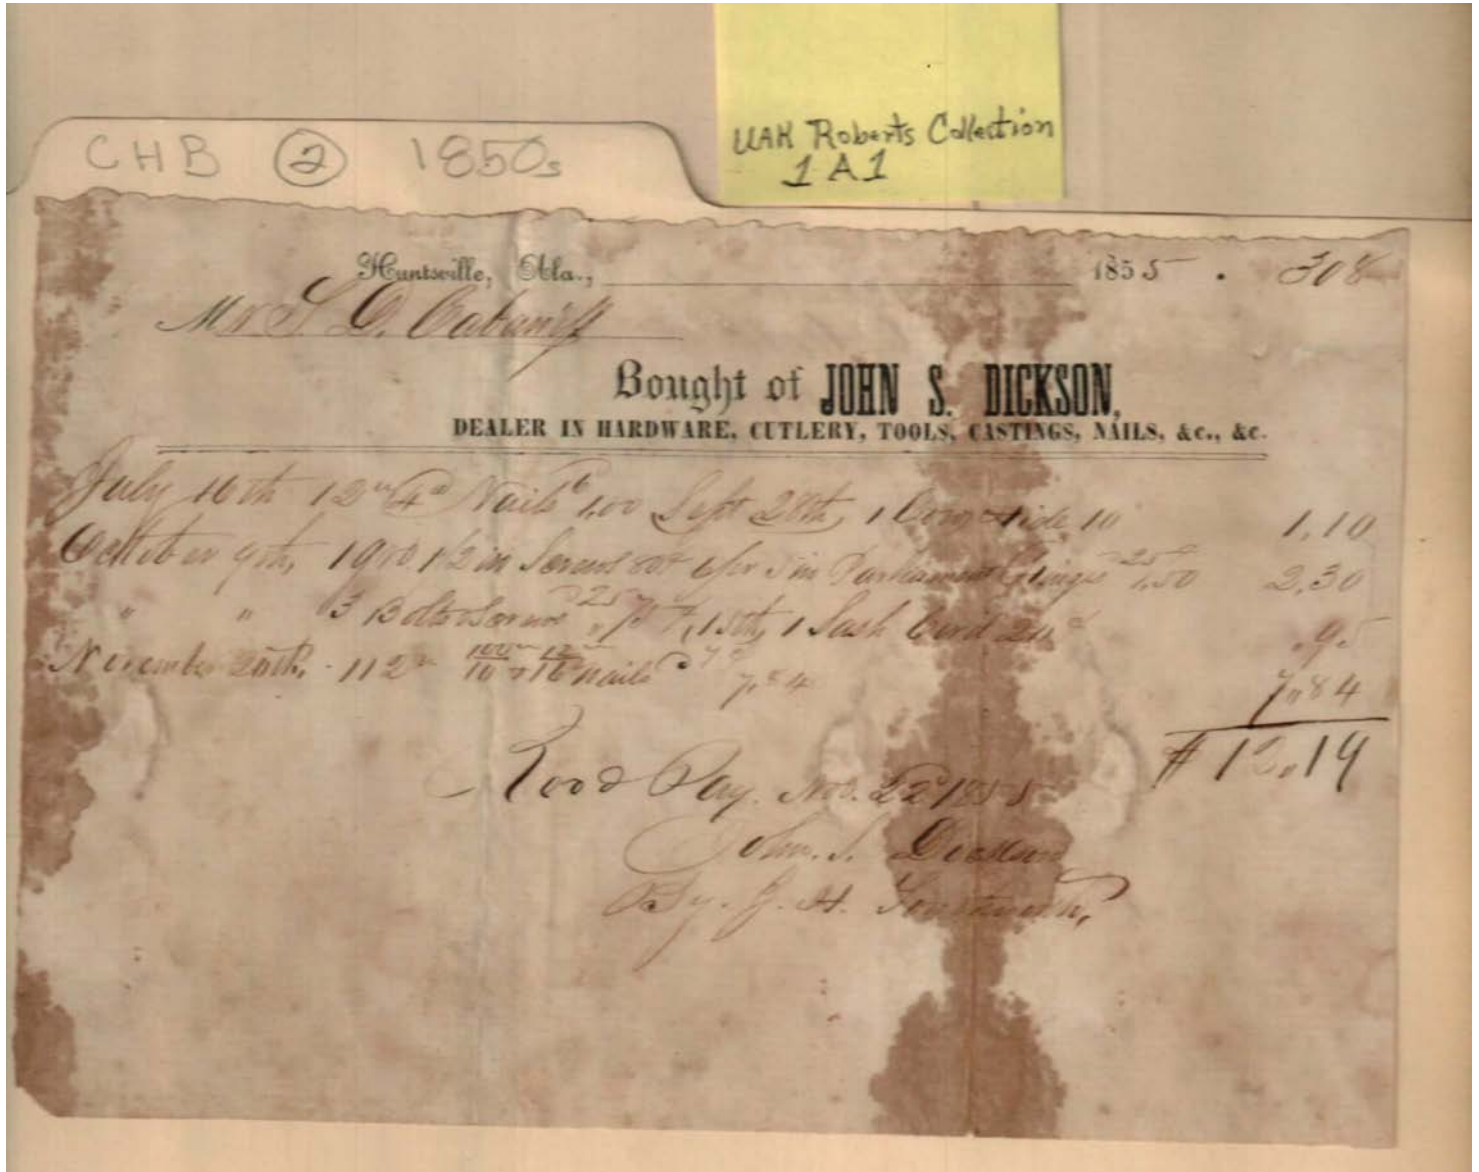 CHB 2 1850s
UAH Roberts Collection
1 A 1
Huntsville, Ala., 1855. 308
Mr S D. Cabaniss
Bought of JOHN S. DICKSON,
DEALER IN HARDWARE, CUTLERY, TOOLS, CASTINGS, NAILS, &c., &c.
July 16th 12 4d Nails 1,00 Sept 28th, 1 10 1,10
October 9th, 1 1/2 in Screws 80c 6 pr 5 in Parliament Hinges 25c 1,50 2,30
" " 3 Bolts 25 15th, 1 Sash Cord
November 20th. 112 100 12 nails 7c 7,84 7,84
$12,19
Recd Pay. Nov. 22d 1855
John. S. Dickson
By. J. H.